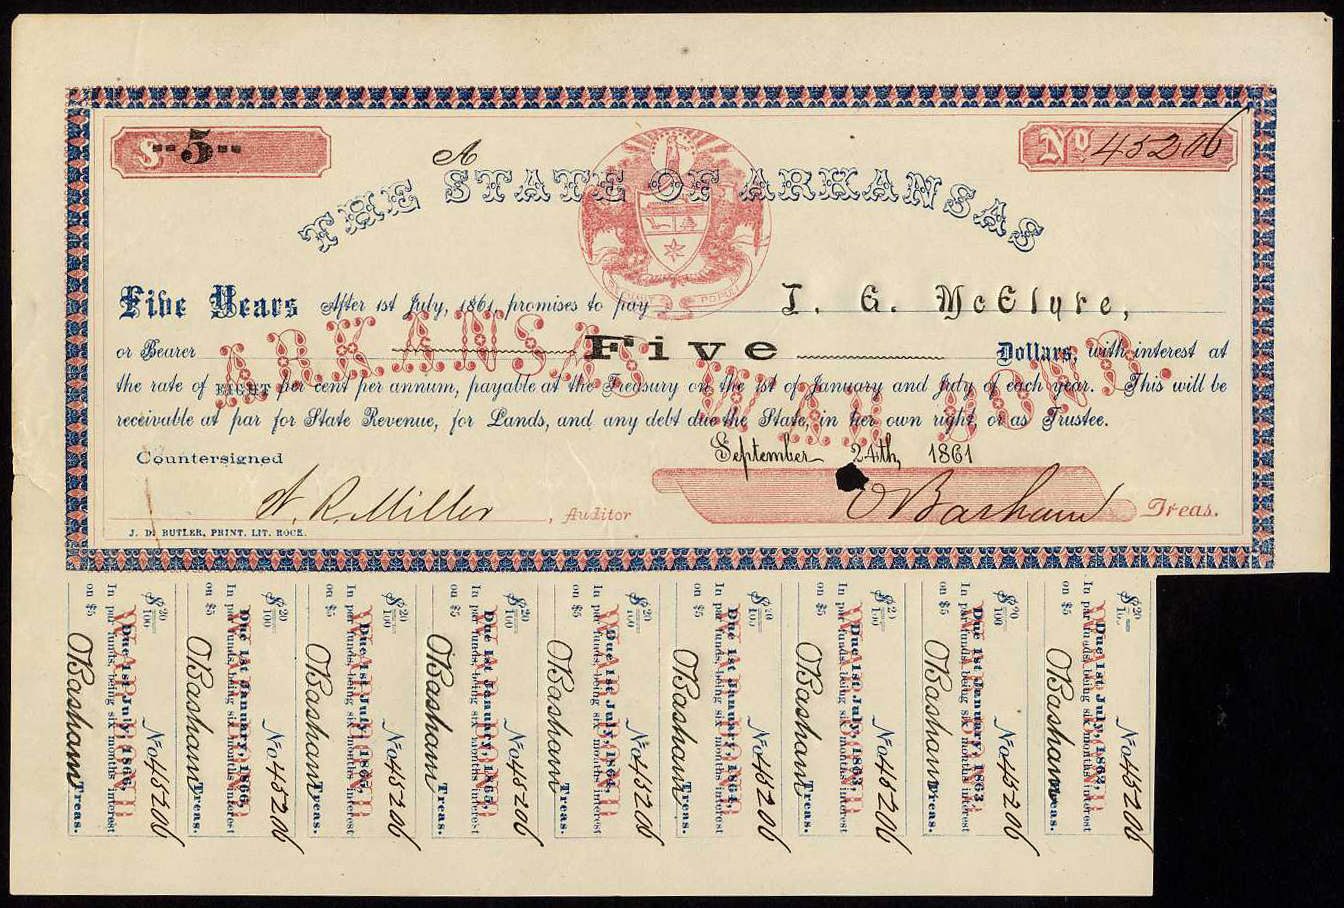 $--5--
A
No 45206
THE STATE OF ARKANSAS
POPULI
Five Years After 1st July, 1861, promises to pay I. G. McElyre,
or Bearer Five Dollars, with interest at
ARKANSAS WAR BOND.
the rate of EIGHT per cent per annum, payable at the Treasury on the 1st of January and July of each year. This will be
receivable at par for State Revenue, for Lands, and any debt due the State, in her own right, or as Trustee.
September 24th, 1861
Countersigned
W. R. Miller, Auditor
O Basham Treas.
J. D. BUTLER, PRINT. LIT. ROCK.
$20/100 No 45206
WAR BOND
Due 1st July, 1866,
In par funds, being six months interest
on $5 O Basham Treas.
$20/100 No 45206
WAR BOND
Due 1st January, 1866,
In par funds, being six months interest
on $5 O Basham Treas.
$20/100 No 45206
WAR BOND
Due 1st July, 1865,
In par funds, being six months interest
on $5 O Basham Treas.
$20/100 No 45206
WAR BOND
Due 1st January, 1865,
In par funds, being six months interest
on $5 O Basham Treas.
$20/100 No 45206
WAR BOND
Due 1st July, 1864,
In par funds, being six months interest
on $5 O Basham Treas.
$20/100 No 45206
WAR BOND
Due 1st January, 1864,
In par funds, being six months interest
on $5 O Basham Treas.
$20/100 No 45206
WAR BOND
Due 1st July, 1863,
In par funds, being six months interest
on $5 O Basham Treas.
$20/100 No 45206
WAR BOND
Due 1st January, 1863,
In par funds, being six months interest
on $5 O Basham Treas.
$20 No 45206
WAR BOND
Due 1st July, 1862,
In par funds, being six months interest
on $5 O Basham Treas.